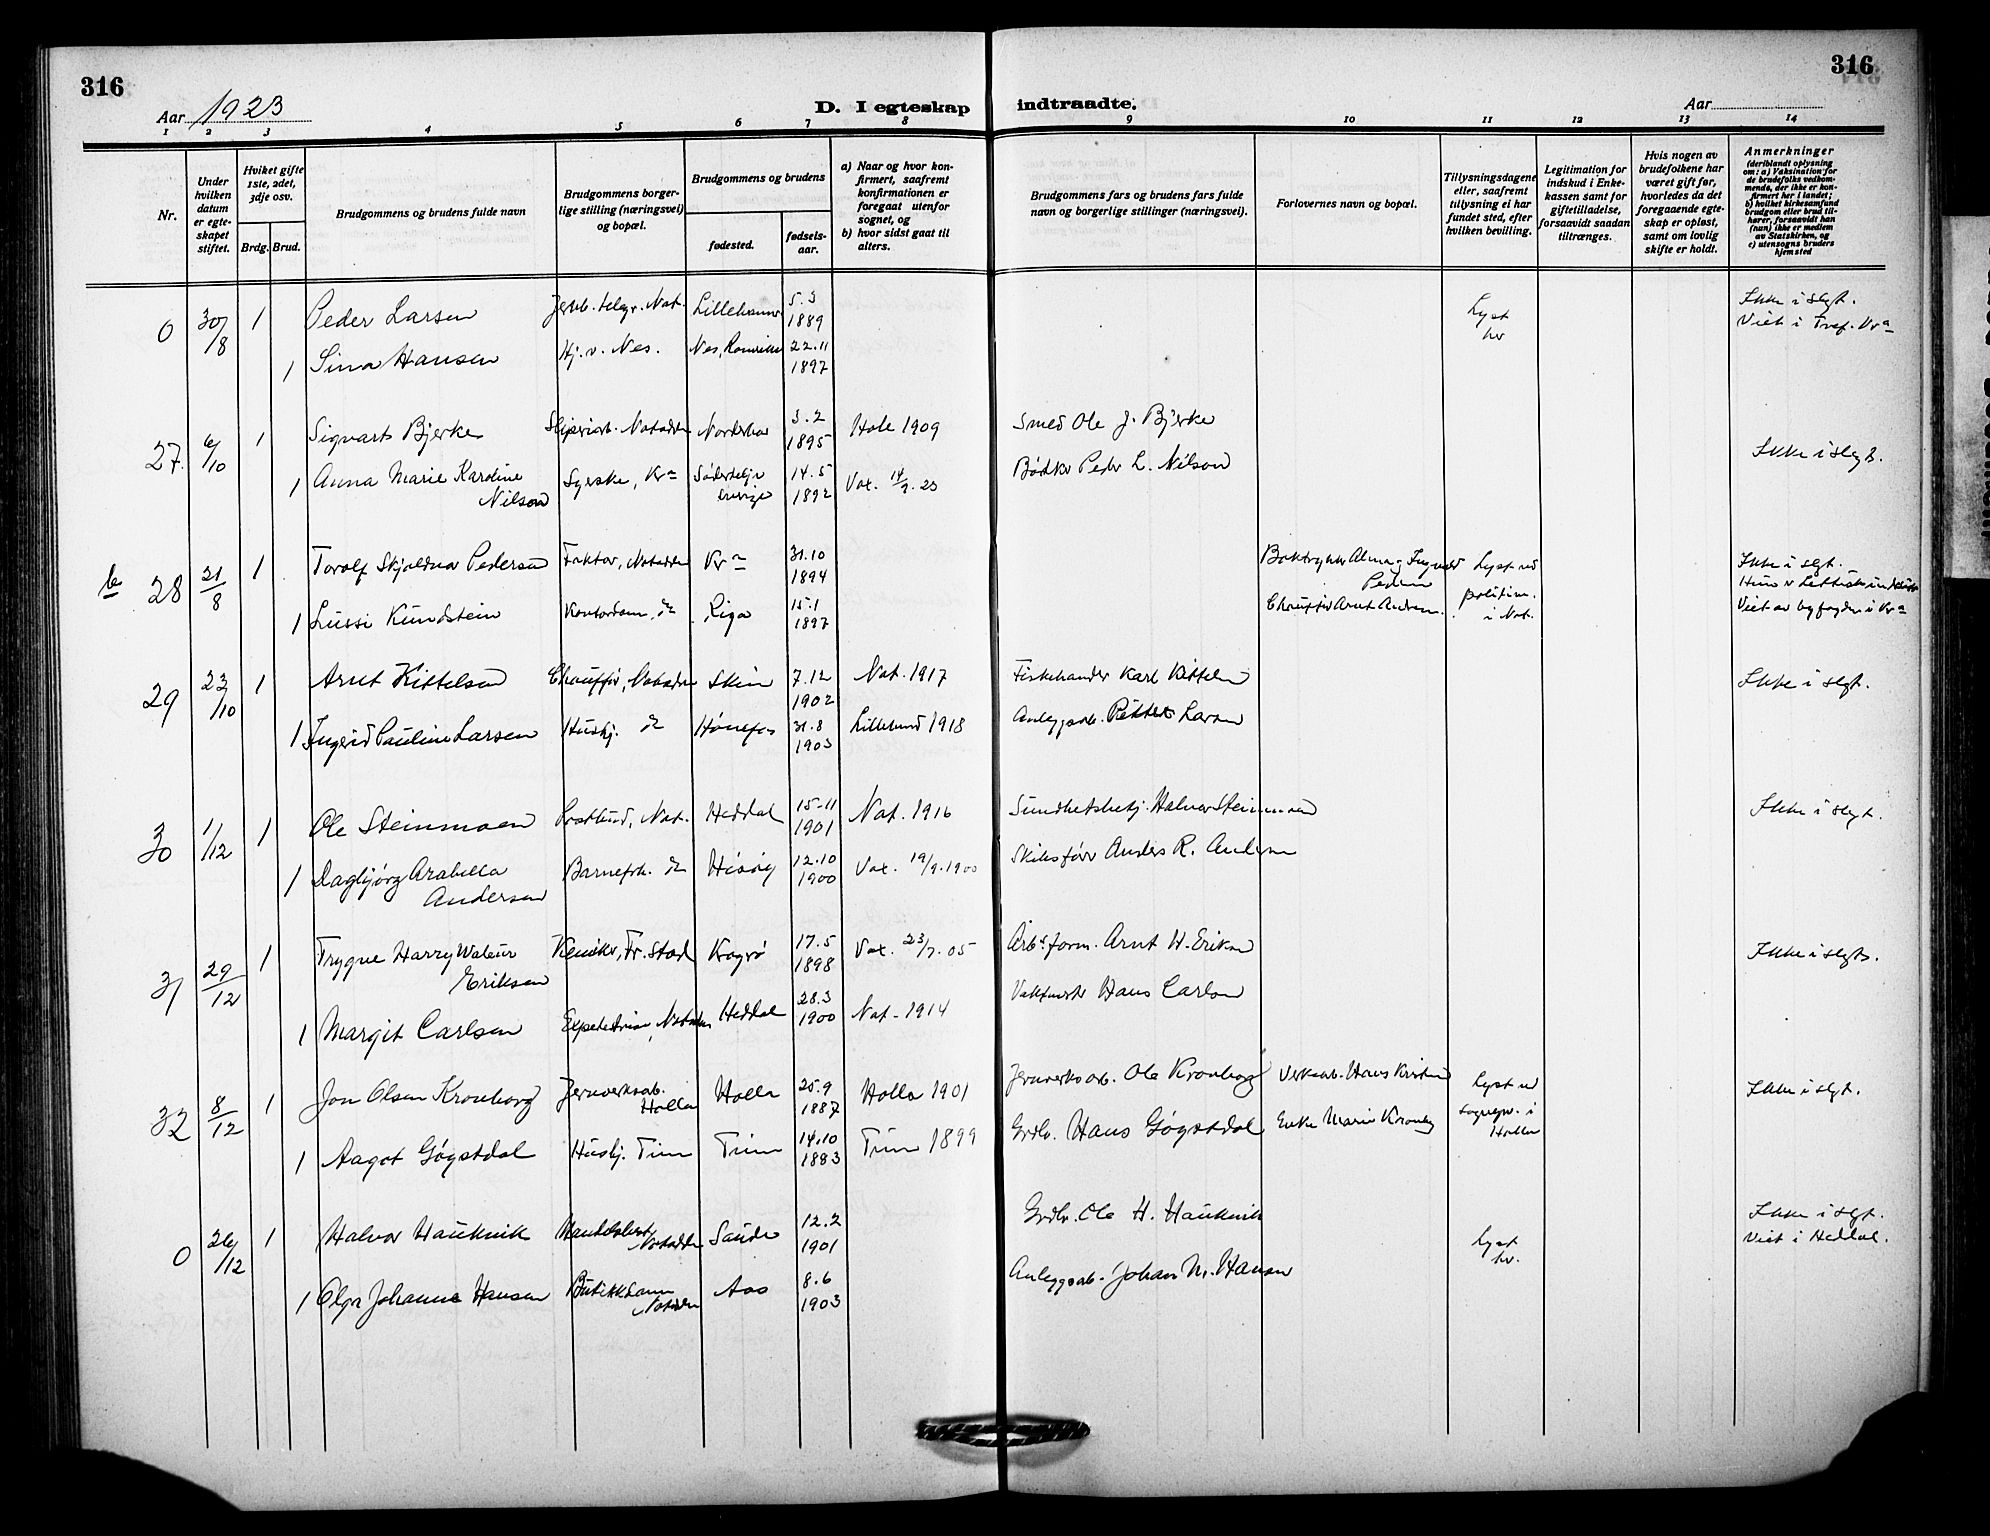 316
316
Aar 1923
D. I egteskap indtraadte.
Aar
1 2 3 4 5 6 7 8 9 10 11 12 13 14
Nr.
Under
hvilken
datum
er egte-
skapet
stiftet.
Hviket gifte
1ste, 2det,
3dje osv.
Brdg. Brud.
Brudgommens og brudens fulde navn
Brudgommens borger-
lige stilling (næringsvei)
og bopæl.
Brudgommens og brudens
fødested.
fødsels-
aar.
a) Naar og hvor kon-
firmert, saafremt
konfirmationen er
foregaat utenfor
sognet, og
b) hvor sidst gaat til
alters.
Brudgommens fars og brudens fars fulde
navn og borgerlige stillinger (næringsvei).
Forlovernes navn og bopæl.
Tillysningsdagene
eller, saafremt
tillysning ei har
fundet sted, efter
hvilken bevilling.
Legitimation for
indskud i Enke-
kassen samt for
giftetilladelse,
forsaavidt saadan
tiltrænges.
Hvis nogen av
brudefolkene har
været gift før,
hvorledes da det
foregaaende egte-
skap er opløst,
samt om lovlig
skifte er holdt.
Anmerkninger
(deriblandt oplysning
om: a) Vaksination for
de brudefolks vedkom-
mende, der ikke er kon-
firmert her i landet;
b) hvilket kirkesamfund
brudgom eller brud til-
hører, forsaavidt han
(hun) ikke er medlem
av Statskirken, og
c) utensogns bruders
hjemsted
0 30/8 1 Peder Larsen Jernb. telegr. Not. Lillehammer 5.3 1889 Lyst her Ikke i slgt.
Viet i Tref. Kra
1 Sina Hansen Hj. v. Nes. Nes, Romerike 22.11 1897
27. 6/10 1 Sigvart Bjerke Sliperiarb. Notodden Norderhov 3.2 1895 Hole 1909 Smed Ole J. Bjerke Ikke i slegt.
1 Anna Marie Karoline
Nilsson Syerske, Kra Södertelje
Sverige 14.5 1892 Vax. 14/9.23 Bødker Peder L. Nilson
b 28 21/8 1 Torolf Skjoldvar Pedersen Faktor, Notodden Kra 31.10 1894 Boktrykker Almar Ingvald
Pedersen Lyst ved
politim.
i Not. Ikke i slgt.
Viet av byfogden i Kra
1 Lussi Kundstein Kontordam. do Riga 15.1 1897 Chauffør Arnt Andersen.
29 23/10 1 Arnt Kittelsen Chauffør, Notodden Skien 7.12 1902 Not. 1917 Fiskehandler Karl Kittelsen Ikke i slgt.
1 Ingrid Pauline Larsen Hushj. do Hønefos 31.8 1903 Lillesand 1918 Anleggsarb. Petter Larsen
30 1/12 1 Ole Steinmoen Postbud, Not. Heddal 15-11 1901 Not. 1916 Sundhetsbetj. Halvor Steinmoen Ikke i slegt.
1 Dagbjørg Arabella
Andersen Barnefrk. do Hisøy 12.10 1900 Vax. 19/9.1900 Skibsfører Anders R. Andersen
31 29/12 1 Trygve Harry Waleur
Eriksen Kemiker, Fr. Stad Kragerø 17.5 1898 Vax. 23/7.05 Arb.form. Arnt H. Eriksen Ikke i slegt.
1 Margit Carlsen Expeditrise, Notodden Heddal 28.3 1900 Not. 1914 Vaktmester Hans Carlsen
32 8/12 1 Jon Olsen Kronborg Jernverksarb.
Holla Holla 25.9 1887 Holla 1901 Jernverksarb. Ole Kronborg Verksarb. Hans Kristensen Lyst ved
sognepr. i
Holla Ikke i slgt.
1 Aagot Gøystdal Hushj. Tinn Tinn 14.10 1883 Tinn 1899 Grdbr. Hans Gøystdal Enke Marie Kronborg
0 26/12 1 Halvor Haukvik Handelsbestyr.
Notodden Saude 12.2 1901 Grdbr. Ole H. Haukvik Lyst
her. Ikke i slgt.
Viet i Heddal.
1 Olga Johanne Hansen Butikkdame
Notodden Aas 8.6 1903 Anleggsarb. Johan M. Hansen